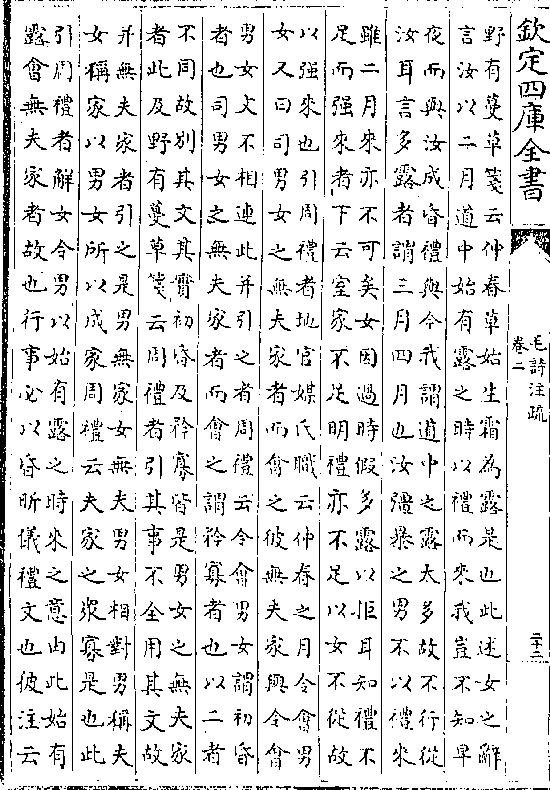 欽定四庫全書
毛詩注疏
卷二
二十三
野有蔓草箋云仲春草始生霜為露是也此述女之辭
言汝以二月道中始有露之時以禮而來我豈不知早
夜而與汝成昏禮與今我謂道中之露太多故不行從
汝耳言多露者謂三月四月也汝彊暴之男不以禮來
雖二月來亦不可矣女因過時假多露以拒耳知禮不
足而强來者下云室家不足明禮亦不足以女不從故
以强來也引周禮者地官媒氏職云仲春之月令會男
女又曰司男女之無夫家者而會之彼無夫家與令會
男女文不相連此并引之者周禮云令會男女謂初昏
者也司男女之無夫家者而會之謂矜寡者也以二者
不同故別其文其實初昏及矜寡皆是男女之無夫家
者此及野有蔓草箋云周禮者引其事不全用其文故
并無夫家者引之是男無家女無夫男女相對男稱夫
女稱家以男女所以成家周禮云夫家之衆寡是也此
引周禮者解女令男以始有露之時來之意由此始有
露會無夫家者故也行事必以昏昕儀禮文也彼注云